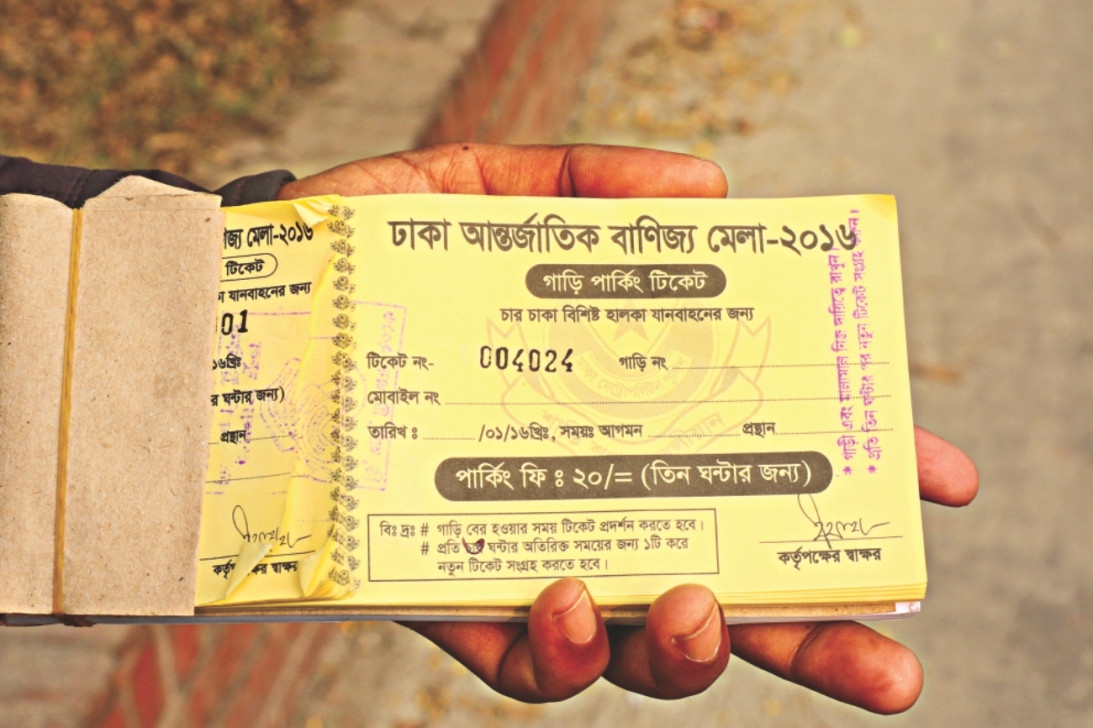 ঢাকা আন্তর্জাতিক বাণিজ্য মেলা-২০১৬
গাড়ি পার্কিং টিকেট
চার চাকা বিশিষ্ট হালকা যানবাহনের জন্য
টিকেট নং- 004024 গাড়ি নং
মোবাইল নং
তারিখ ঃ /০১/১৬খ্রিঃ, সময়ঃ আগমন প্রস্থান
পার্কিং ফি ঃ ২০/= (তিন ঘন্টার জন্য)
বিঃ দ্রঃ # গাড়ি বের হওয়ার সময় টিকেট প্রদর্শন করতে হবে।
# প্রতি ঘন্টার অতিরিক্ত সময়ের জন্য ১টি করে
নতুন টিকেট সংগ্রহ করতে হবে।
কর্তৃপক্ষের স্বাক্ষর
* গাড়ী এবং মালামাল নিজ দায়িত্বে রাখুন।
* প্রতি তিন ঘন্টার পর নতুন টিকেট সংগ্রহ করুন।
মেলা-২০১৬
টিকেট
যানবাহনের জন্য
01
১৬খ্রিঃ
ঘন্টার জন্য)
প্রস্থান
স্বাক্ষর